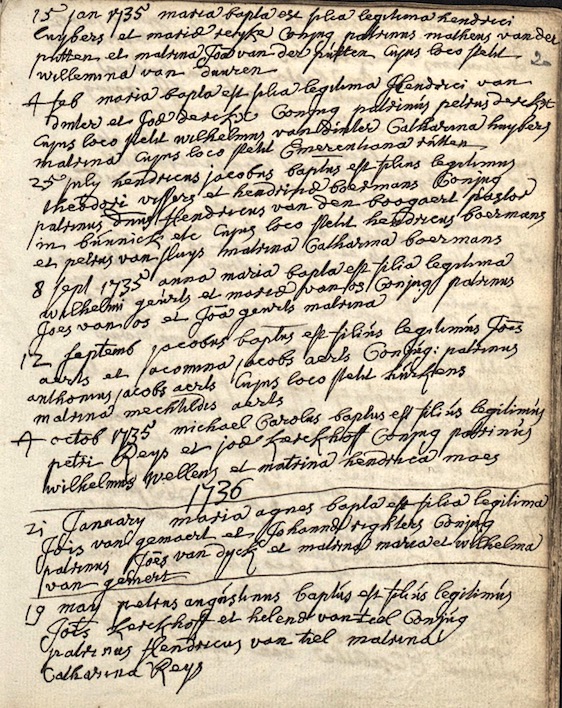 15 jan 1735 maria bapta est filia legitima hendrici
Cuijbers et mariæ reijke Conjug patrinus matheus van der
putten et matrina Joa van der putten Cujus loco stetit
willemina van duuren
2
4 feb maria bapta est filia legitima Hendrici van
dinter et Joæ derckx Conjug patrinus petrus derckx
Cujus loco stetit wilhelmus van dinter Catharana huijbers
matrina Cujus loco stetit Emerentiana rutten
25 july hendricus jacobus baptus est filius legitimus
theodori vissers et hendrinæ boermans Conjug
patrinus dnus Hendricus van den boogaert pastor
in bunnick etc Cujus loco stetit hendricus boermans
et petrus van sluys matrina Catharina boermans
8 sept 1735 anna maria bapta est filia legitima
wilhelmi geurts et mariæ van os Conjug patrinus
Joes van os et Joa geurts matrina
12 septemb jacobus baptus est filius legitimus Jois
aerts et jacomina jacobs aerts Conjug: patrinus
anthonius jacobs aerts Cujus loco stetit
matrina mechtildis aerts
4 octob 1735 michael Carolus baptus est filius legitimus
petri Keys et joæ Kerckhoff Conjug patrinus
wilhelmus wellens et matrina hendrica maes
1736
21 January maria agnes bapta est filia legitima
Jois van gemaert et Johannæ righters Conjug
patrinus Joes van dyck et matrina maria et wilhelma
van gemert
19 may petrus augustinus baptus est filius legitimus
Jois Kerckhoff et helenæ van teel Conjug
patrinus Hendricus van tiel matrina
Catharina Keys